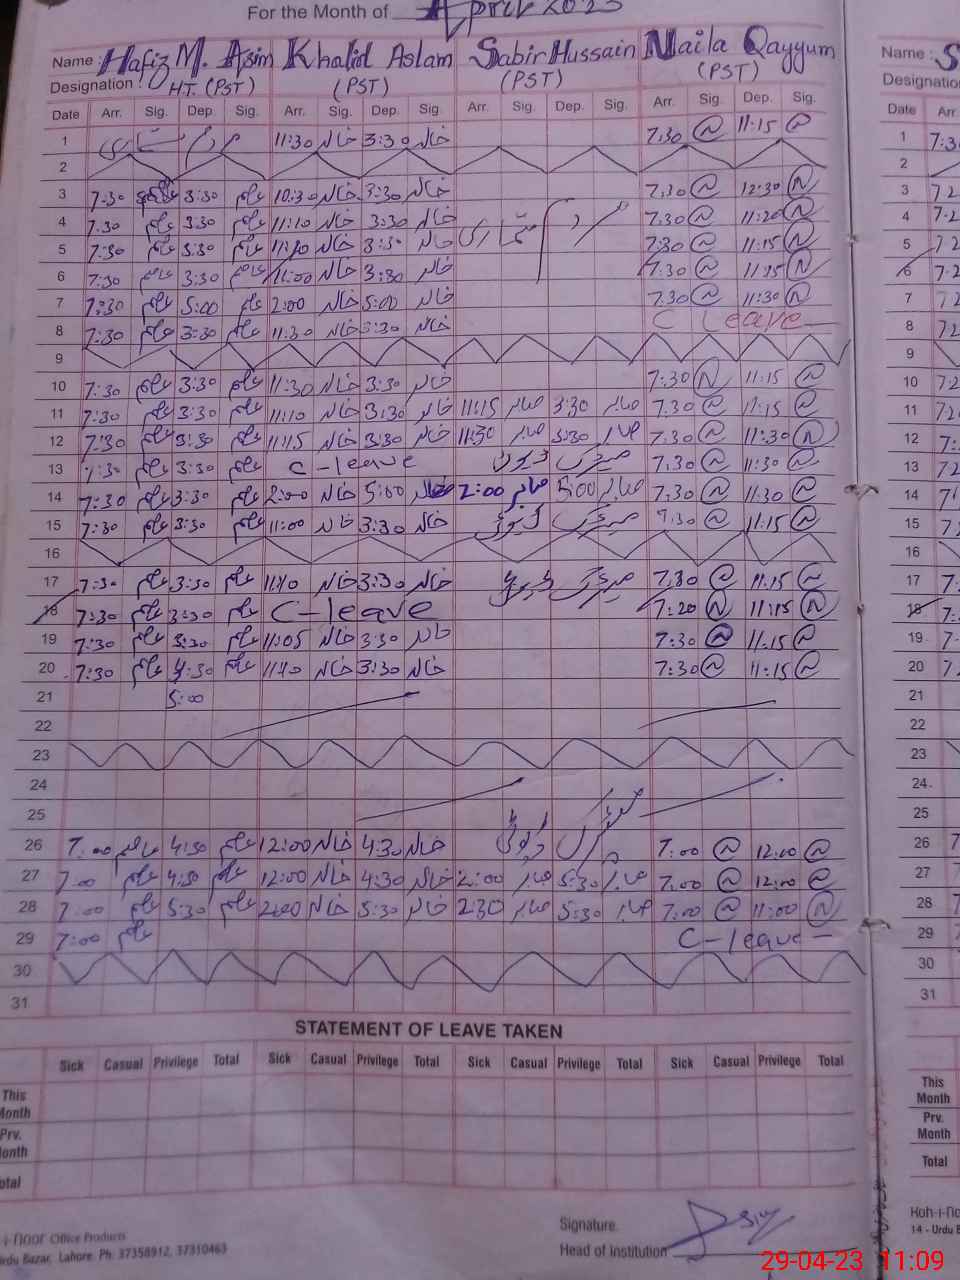 For the Month of April 2023
Name : Hafiz M. Asim Khalid Aslam Sabir Hussain Naila Qayyum Name : S
Designation : H.T. (PST) (PST) (PST) (PST) Designation
Date Arr. Sig. Dep. Sig. Arr. Sig. Dep. Sig. Arr. Sig. Dep. Sig. Arr. Sig. Dep. Sig. Date Arr
1 11:30 خالد 3:30 خالد 7.30 11:15 1 7:3
2 2
3 7:30 3:30 عاصم 10:30 خالد 3:30 خالد 7.30 12:30 3 7.2
4 7.30 عاصم 3:30 عاصم 11:10 خالد 3:30 خالد 7.30 11:20 4 7.2
5 7:30 عاصم 3:30 عاصم 11:10 خالد 3:30 خالد 7:30 11:15 5 7.2
6 7:30 عاصم 3:30 عاصم 11:00 خالد 3:30 خالد 7:30 11:15 6 7.2
7 7:30 عاصم 5:00 عاصم 2:00 خالد 5:00 خالد 7.30 11:30 7 7.2
8 7:30 عاصم 3:30 عاصم 11:30 خالد 3:30 خالد C Leave 8 7.2
9 9
10 7:30 عاصم 3:30 عاصم 11:30 خالد 3:30 خالد 7:30 11:15 10 7.2
11 7:30 عاصم 3:30 عاصم 11:10 خالد 3:30 خالد 11:15 صابر 3:30 صابر 7.30 11:15 11 7.2
12 7:30 عاصم 3:30 عاصم 11:15 خالد 3:30 خالد 11:30 صابر 3:30 صابر 7:30 11:30 12 7.
13 7:30 عاصم 3:30 عاصم C-leave میٹرک ڈیوٹی 7.30 11:30 13 7.2
14 7:30 عاصم 3:30 عاصم 2:00 خالد 5:00 خالد 2:00 صابر 5:00 صابر 7.30 11:30 14 7
15 7:30 عاصم 3:30 عاصم 11:00 خالد 3:30 خالد میٹرک ڈیوٹی 7:30 11:15 15 7.2
16 16
17 7:30 عاصم 3:30 عاصم 11:10 خالد 3:30 خالد میٹرک ڈیوٹی 7.30 11:15 17 7.
18 7:30 عاصم 3:30 عاصم C-leave 7:20 11:15 18 7.
19 7:30 عاصم 3:30 عاصم 11:05 خالد 3:30 خالد 7:30 11:15 19 7.2
20 7:30 عاصم 4:30 عاصم 11:10 خالد 3:30 خالد 7:30 11:15 20 7.2
21 5:00 21
22 22
23 23
24 24
25 25
26 7:00 عاصم 4:30 عاصم 12:00 خالد 4:30 خالد میٹرک ڈیوٹی 7:00 12:00 26 7.
27 7:00 عاصم 4:30 عاصم 12:00 خالد 4:30 خالد 2:00 صابر 5:30 صابر 7:00 12:00 27 7.
28 7:00 عاصم 5:30 عاصم 2:00 خالد 5:30 خالد 2:30 صابر 5:30 صابر 7:00 11:00 28 7
29 7:00 عاصم C-leave 29
30 30
31 31
STATEMENT OF LEAVE TAKEN
Sick Casual Privilege Total Sick Casual Privilege Total Sick Casual Privilege Total Sick Casual Privilege Total
This Month This Month
Prv. Month Prv. Month
Total Total
i-noor Office Products Koh-i-no
Urdu Bazar, Lahore. Ph: 37358912, 37310463 14 - Urdu B
Signature.
Head of Institution
29-04-23 11:09